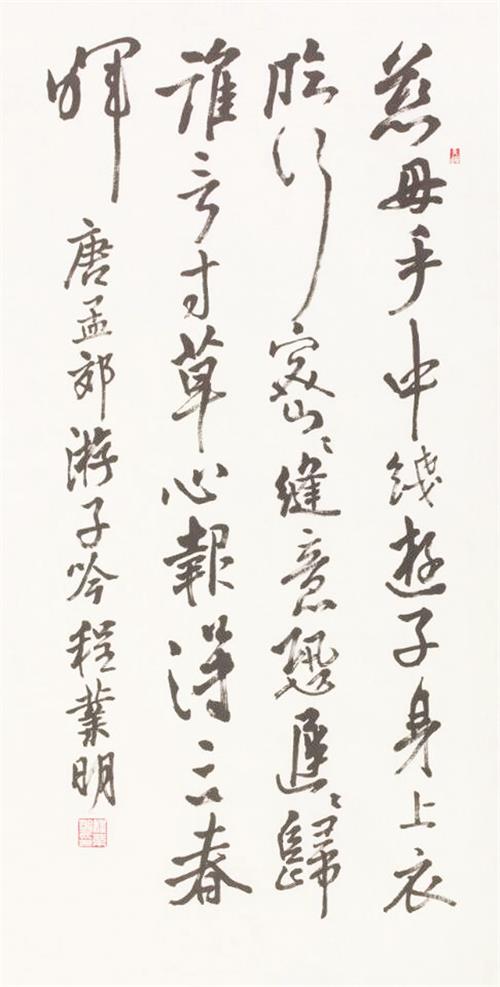 慈母手中线遊子身上衣
临行密密缝意恐遲遲歸
谁言寸草心報得三春
晖
唐孟郊游子吟程業明